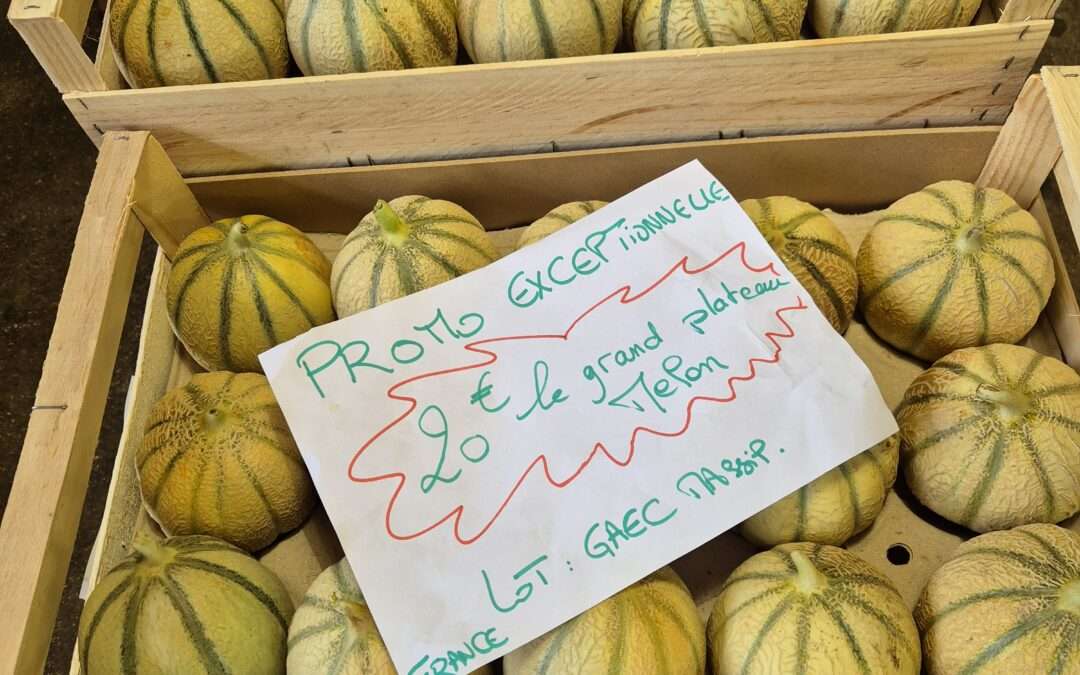 PROMO EXCEPTIONNELLE
20 € le grand plateau
Melon
LOT : GAEC MASSIP.
FRANCE